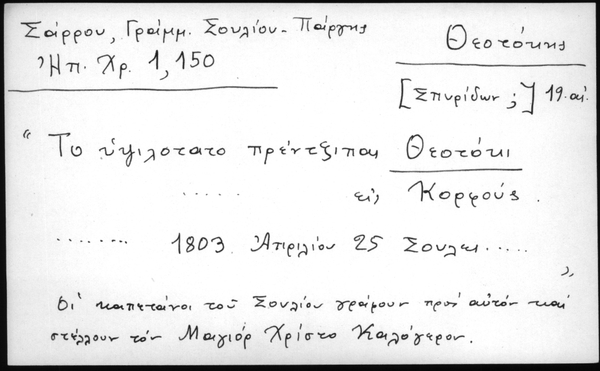 Σάρρου, Γράμμ. Σουλίου - Πάργης
Ἠπ. Χρ. 1, 150
Θεοτόκης
[Σπυρίδων ;] 19. αἰ.
"Το ὑψιλοτατο πρέντζιπαι Θεοτόκι
..... εἰς Κορφούς.
........ 1803 Ἀπριλίου 25 Σουλει.....
"
Οἱ καπεταῖνοι τοῦ Σουλίου γράφουν πρός αὐτόν καί
στέλλουν τόν Μαγιόρ Χρίστο Καλόγερον.